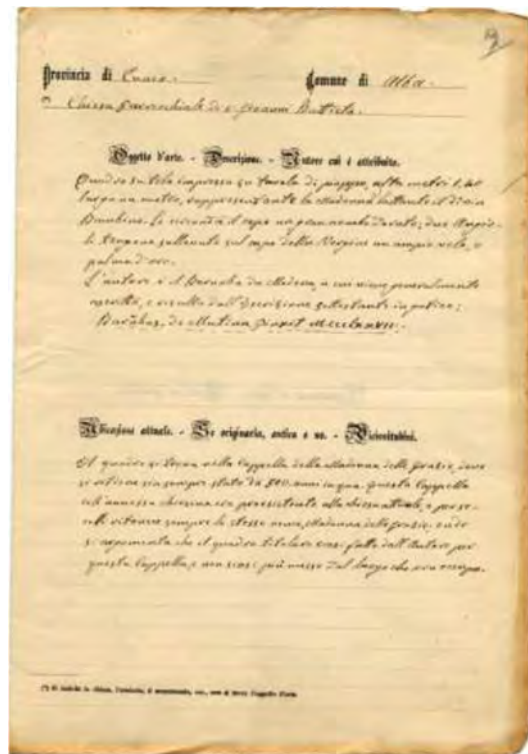 Provincia di Cuneo. Comune di Alba.
(*) Chiesa parrocchiale di S. Giovanni Battista.
Oggetto d'arte. - Descrizione. - Autore cui è attribuito.
Quadro su tela impressa su tavola di pioppo, alto metri 1,40
largo un metro, rappresentante la Madonna lattante il divin
Bambino. Le circonda il capo un gran nembo dorato; due Angio-
le tengono sollevato sul capo della Vergine un ampio velo, a
palma d'oro.
L'autore è il Barnaba da Modena, a cui viene generalmente
ascritto, e risulta dall'iscrizione sottostante in gotico:
Barnabas de Mutina pinxit
Ubicazione attuale. - Se originaria, antica o no. - Vicissitudini.
Il quadro si trova nella Cappella della Madonna delle Grazie, dove
si ritiene sia sempre stato da 500 anni in qua. Questa Cappella
era preesistente alla chiesa attuale, e per se-
coli ritenne sempre lo stesso nome, Madonna delle Grazie; onde
si argomenta che il quadro titolare siasi fatto dall'Autore per
questa Cappella, e non siasi più mosso dal luogo che ora occupa.